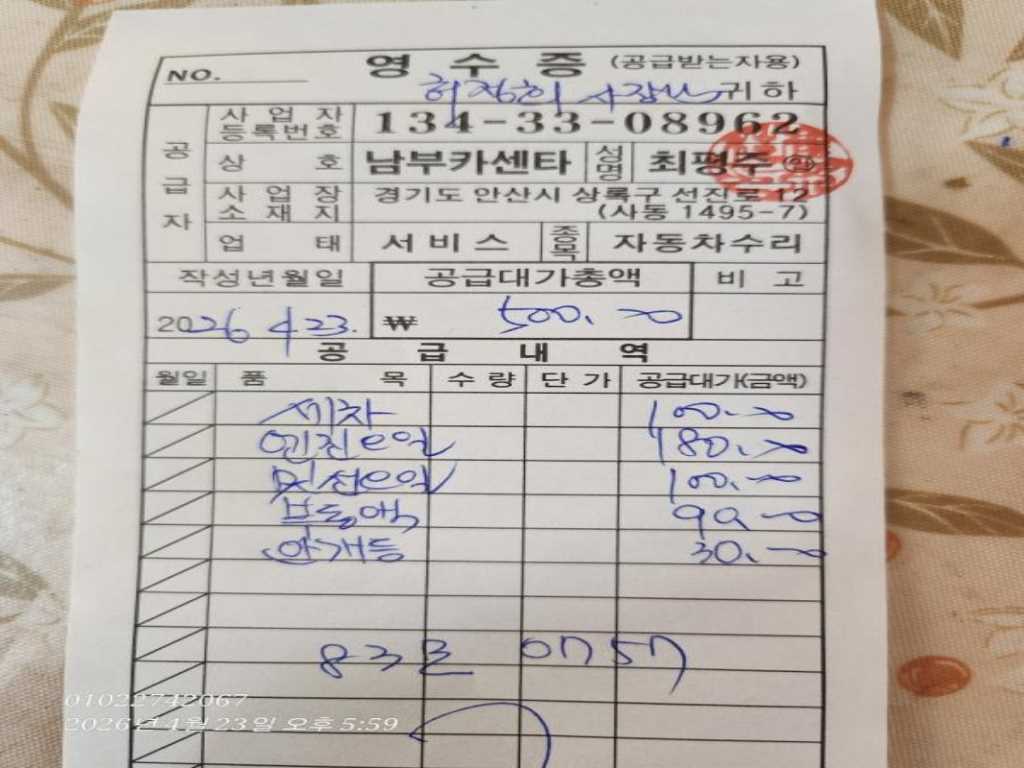 영 수 증 (공급받는자용)
NO.
허창희 사장님 귀하
공급자
사업자등록번호 134-33-08962
상호 남부카센타 성명 최평주 ㊞
사업장소재지 경기도 안산시 상록구 선진로 12
(사동 1495-7)
업태 서비스 종목 자동차수리
작성년월일 공급대가총액 비고
2026 4 23. ₩ 500.-00
공 급 내 역
월일 품목 수량 단가 공급대가(금액)
세차 100.-00
엔진오일 180.-00
밋션오일 100.-00
부동액 90-00
안개등 30.-00
83로 0757
01022742067
2026년 4월 23일 오후 5:59